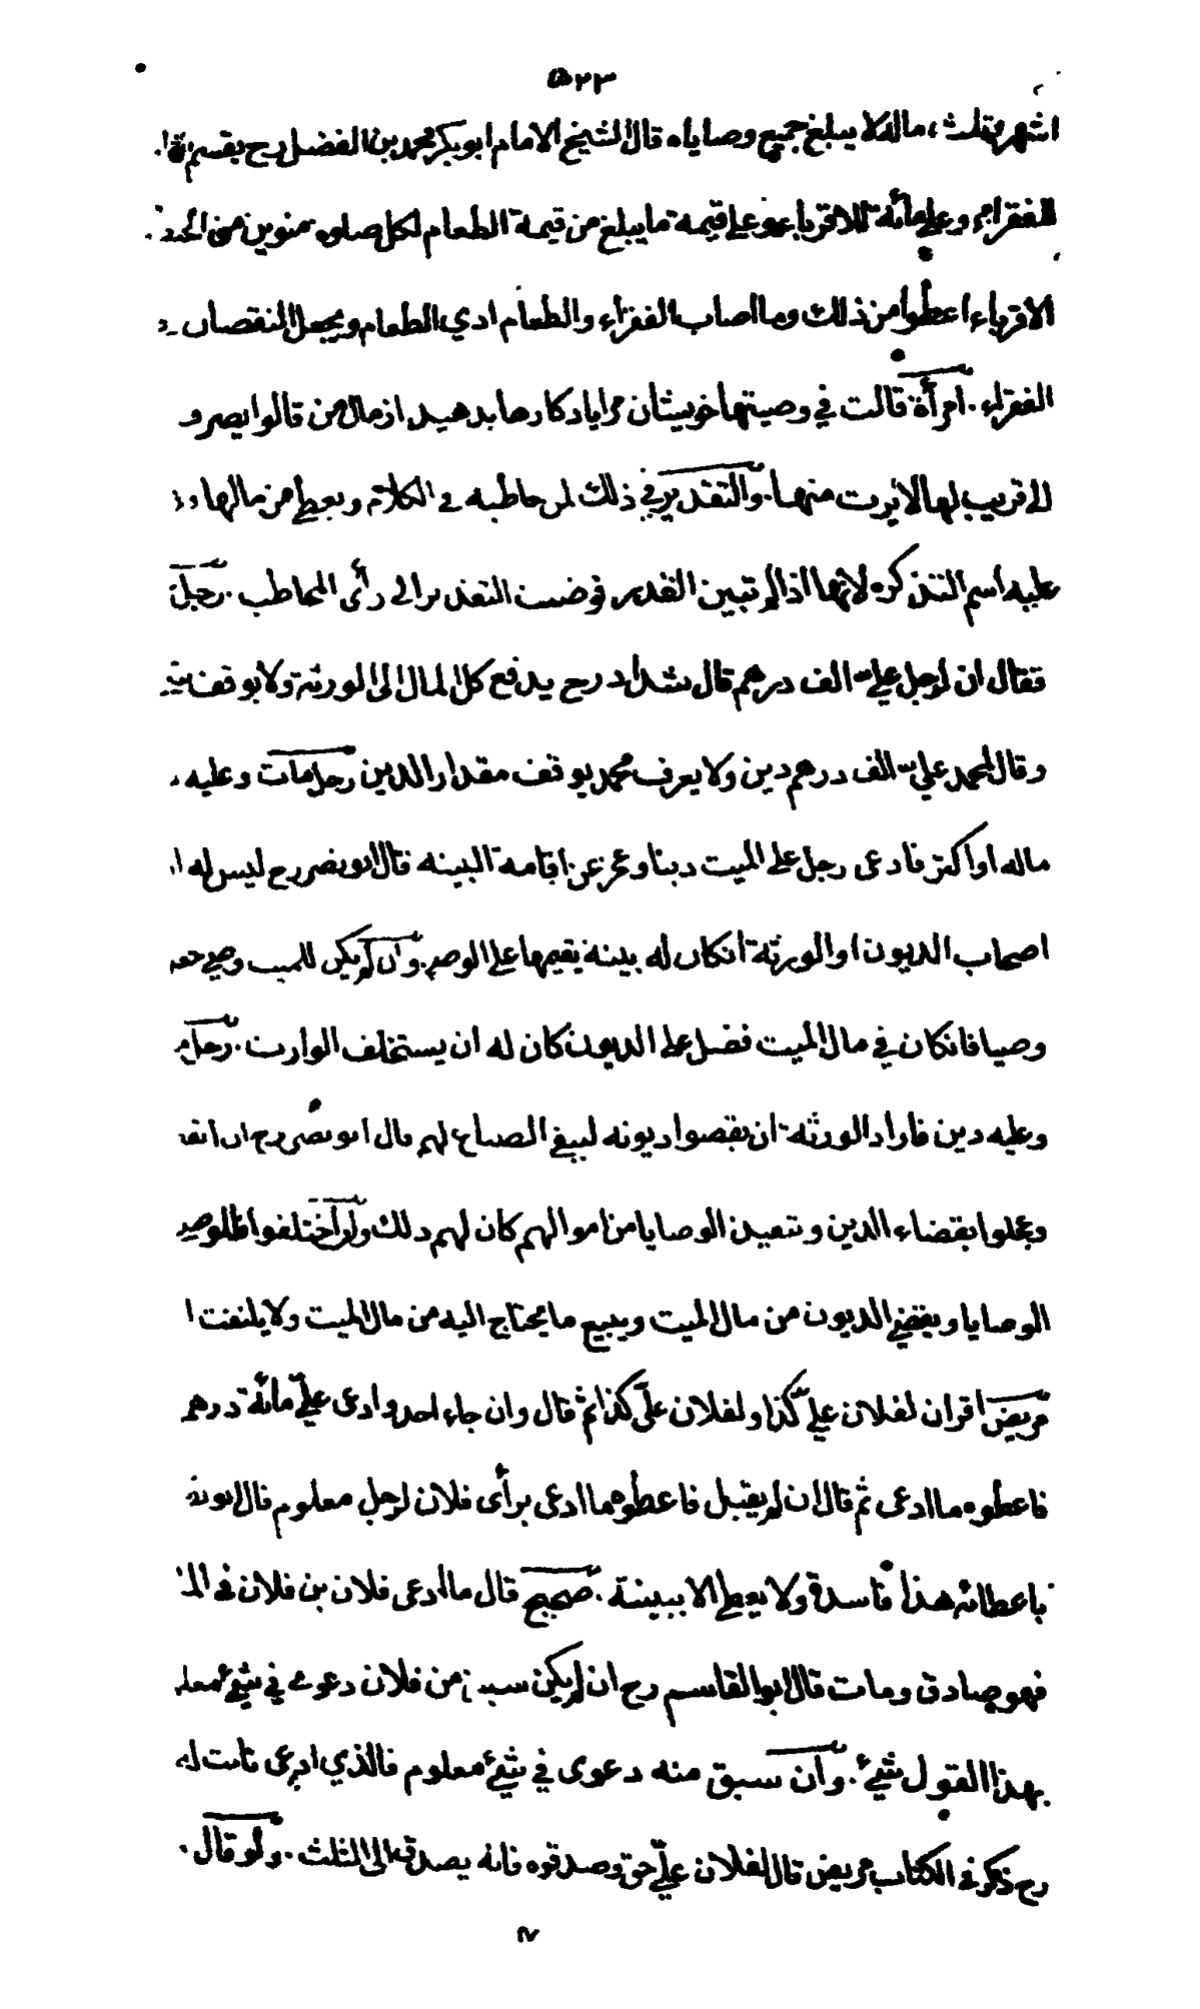 ٥٢٣
اشهر وثلث ماله لا يبلغ جميع وصاياه قال الشيخ الامام ابو بكر محمد بن الفضل رح يقسم
الفقراء وعلى مائة للاقرباء وعلى قيمة ما يبلغ من قيمة الطعام لكل صلوه منوين من
الاقرباء اعطوا من ذلك وما اصاب الفقراء والطعام ادي الطعام ويجعل النقصان
الفقراء . امرأة قالت في وصيتها خويشان مرا يادكارها بدهيد از مال من قالوا يصرف
الى قريب لها لا يرث منها . والتقدير في ذلك لمن خاطبه في الكلام ويعطي من مالها
عليه اسم التذكره لانها اذا لم تبين القدر فوضت التقدير الى رأى المخاطب . رجل
فقال ان لرجل علي الف درهم قال شداد رح يدفع كل المال الى الورثة ولا يوقف
وقال لمحمد علي الف درهم دين ولا يعرف محمد يوقف مقدار الدين رجل مات وعليه
ماله او اكثر فادعى رجل على الميت دينا وعجز عن اقامة البينه قال ابو نصر رح ليس له
اصحاب الديون او الورثة انكان له بينة يقيمها على الوصي . وان لم يكن للميت وصي
وصيا فانكان في مال الميت فضل على الديون كان له ان يستحلف الوارث . رجل
وعليه دين فاراد الورثه ان يقضوا ديونه لتبقى الضياع لهم قال ابو نصر رح ان
وعجلوا بقضاء الدين وتنفيذ الوصايا من اموالهم كان لهم ذلك ولو اختلفوا فللوصي
الوصايا ويقضي الديون من مال الميت ويبيع ما يحتاج اليه من مال الميت ولا يلتفت
مريض اقر ان لفلان علي كذا ولفلان علي كذا ثم قال وان جاء احد وادعى علي مائة درهم
فاعطوه ما ادعى ثم قال ان لم يقبل فاعطوه ما ادعى برأى فلان لرجل معلوم قال ابو
باعطائه هذا فاسدة ولا يعطي الا ببينة . صحيح قال ما ادعى فلان بن فلان في
فهو صادق ومات قال ابو القاسم رح ان لم يكن سبق من فلان دعوى في شئ
بهذا القول شئ . وان سبق منه دعوى في شئ معلوم فالذي ادعى ثابت له
رح ذكر في الكتاب مريض قال لفلان علي حق وصدقوه فانه يصدق الى الثلث . ولو قال